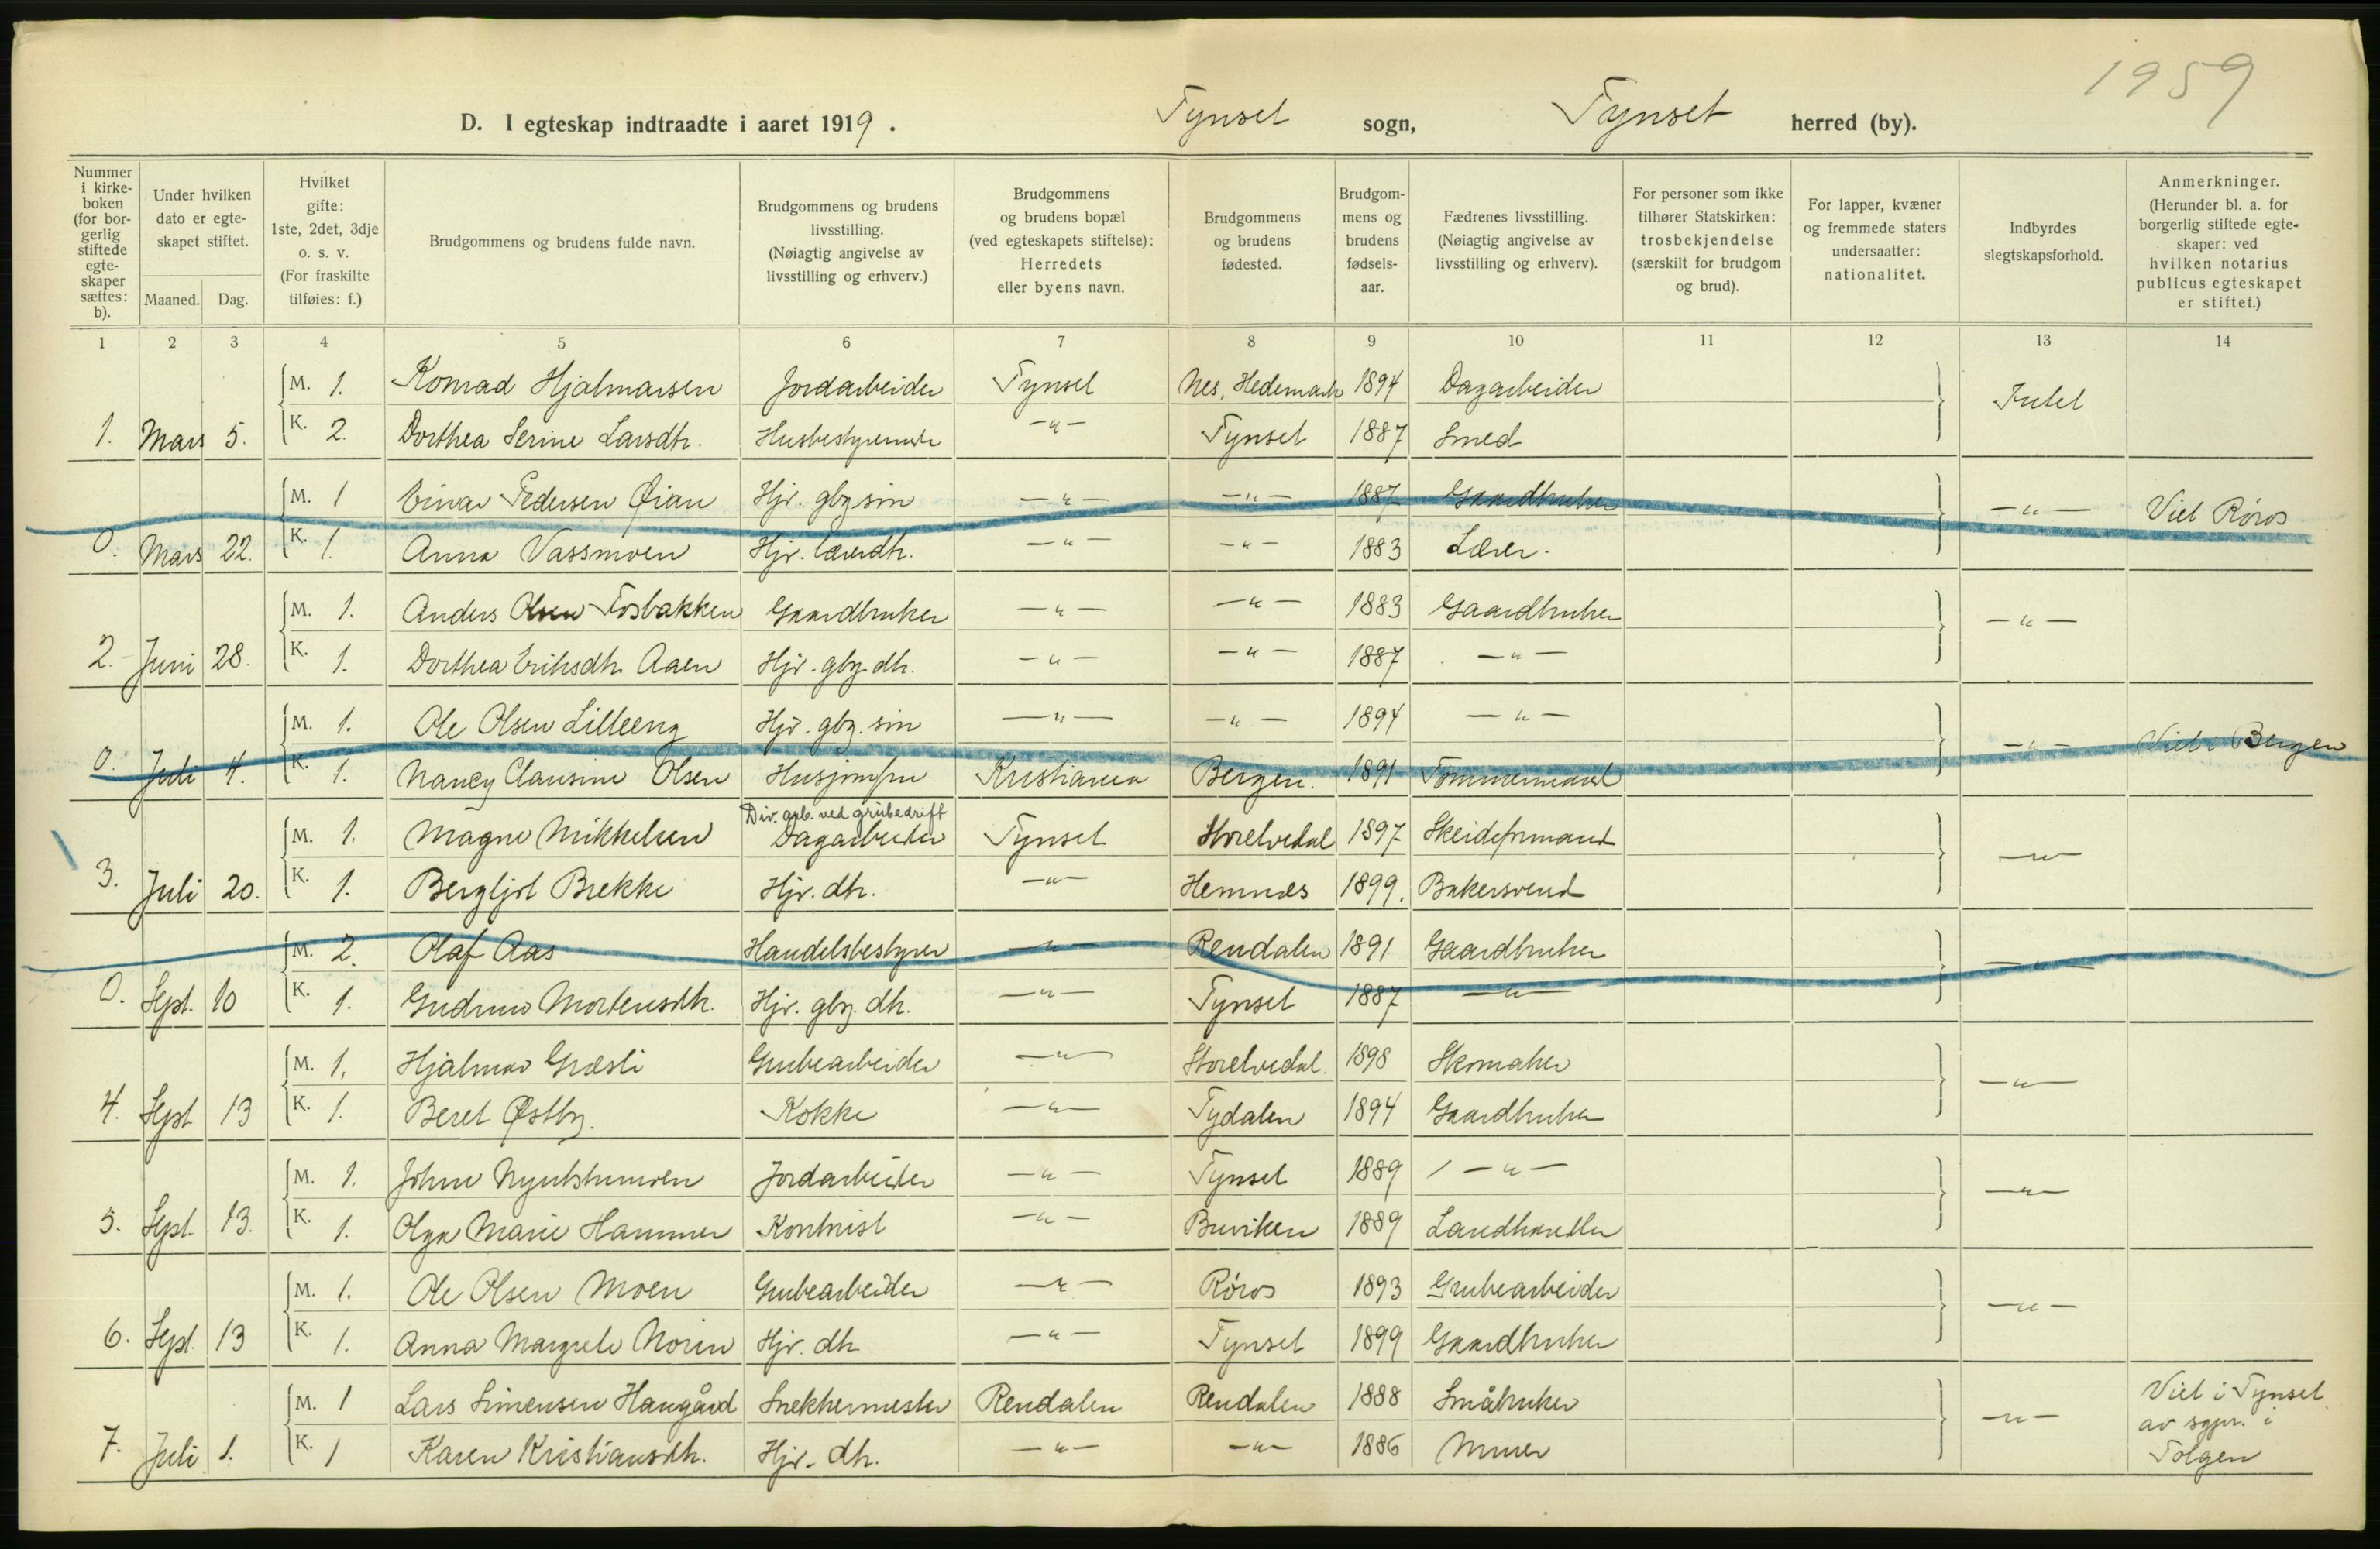 1959
D. I egteskap indtraadte i aaret 1919. Tynset sogn, Tynset herred (by).
Nummer i kirkeboken (for borgerlig stiftede egteskaper sættes: b). Under hvilken dato er egteskapet stiftet. Maaned. Dag. Hvilket gifte: 1ste, 2det, 3dje o. s. v. (For fraskilte tilføies: f.) Brudgommens og brudens fulde navn. Brudgommens og brudens livsstilling. (Nøiagtig angivelse av livsstilling og erhverv.) Brudgommens og brudens bopæl (ved egteskapets stiftelse): Herredets eller byens navn. Brudgommens og brudens fødested. Brudgommens og brudens fødselsaar. Fædrenes livsstilling. (Nøiagtig angivelse av livsstilling og erhverv). For personer som ikke tilhører Statskirken: trosbekjendelse (særskilt for brudgom og brud). For lapper, kvæner og fremmede staters undersaatter: nationalitet. Indbyrdes slegtskapsforhold. Anmerkninger. (Herunder bl. a. for borgerlig stiftede egteskaper: ved hvilken notarius publicus egteskapet er stiftet.)
1 2 3 4 5 6 7 8 9 10 11 12 13 14
M. 1. Konrad Hjalmarsen Jordarbeider Tynset Nes, Hedemark 1894 Dagarbeider Intet
1. Mars 5. K. 2. Dorthea Serine Larsdtr. Husbestyrerinde —"— Tynset 1887 Smed
M. 1 Einar Pedersen Øian Hjv. gbr. søn —"— —"— 1887 Gaardbruker —"— Viet Røros
0. Mars 22. K. 1. Anna Vassmoen Hjv. lærerdtr. —"— —"— 1883 Lærer.
M. 1. Anders Olsen Fosbakken Gaardbruker —"— —"— 1883 Gaardbruker —"—
2. Juni 28. K. 1. Dorthea Eriksdtr. Aaen Hjv. gbr. dtr. —"— —"— 1887 —"—
M. 1. Ole Olsen Lilleeng Hjv. gbr. søn —"— —"— 1894 —"—
0. Juli 4. K. 1. Nancy Clausine Olsen Husjomfru Kristiania Bergen. 1891 Tømmermand —"— Viet i Bergen
Div. arb. ved grubedrift
M. 1. Magne Mikkelsen Dagarbeider Tynset Storelvedal 1897 Skeideformand —"—
3. Juli 20. K. 1. Bergljot Brekke Hjv. dtr. —"— Hemnes 1899. Bakersvend
M. 2. Olaf Aas Handelsbestyrer —"— Rendalen 1891 Gaardbruker —"—
0. Sept. 10 K. 1. Gudrun Mortensdtr. Hjv. gbr. dtr. —"— Tynset 1887 —"—
M. 1. Hjalmar Græsli Grubearbeider —"— Storelvedal. 1898 Skomaker —"—
4. Sept 13 K. 1. Beret Østby. Kokke —"— Tydalen 1894 Gaardbruker
M. 1. Johan Nyutstumoen Jordarbeider —"— Tynset 1889 —"— —"—
5. Sept. 13. K. 1. Olga Marie Hammer Kontorist —"— Buviken 1889 Landhandler
M. 1. Ole Olsen Moen Grubearbeider —"— Røros 1893 Grubearbeider —"—
6. Sept. 13 K. 1. Anna Margrete Moren Hjv. dtr —"— Tynset 1899 Gaardbruker
M. 1 Lars Simensen Haugård Snekkermester Rendalen Rendalen 1888 Småbruker —"— Viet i Tynset av sgpr. i
7. Juli 1. K. 1 Karen Kristiansdtr. Hjv. dtr. —"— —"— 1886 Murer Tolgen